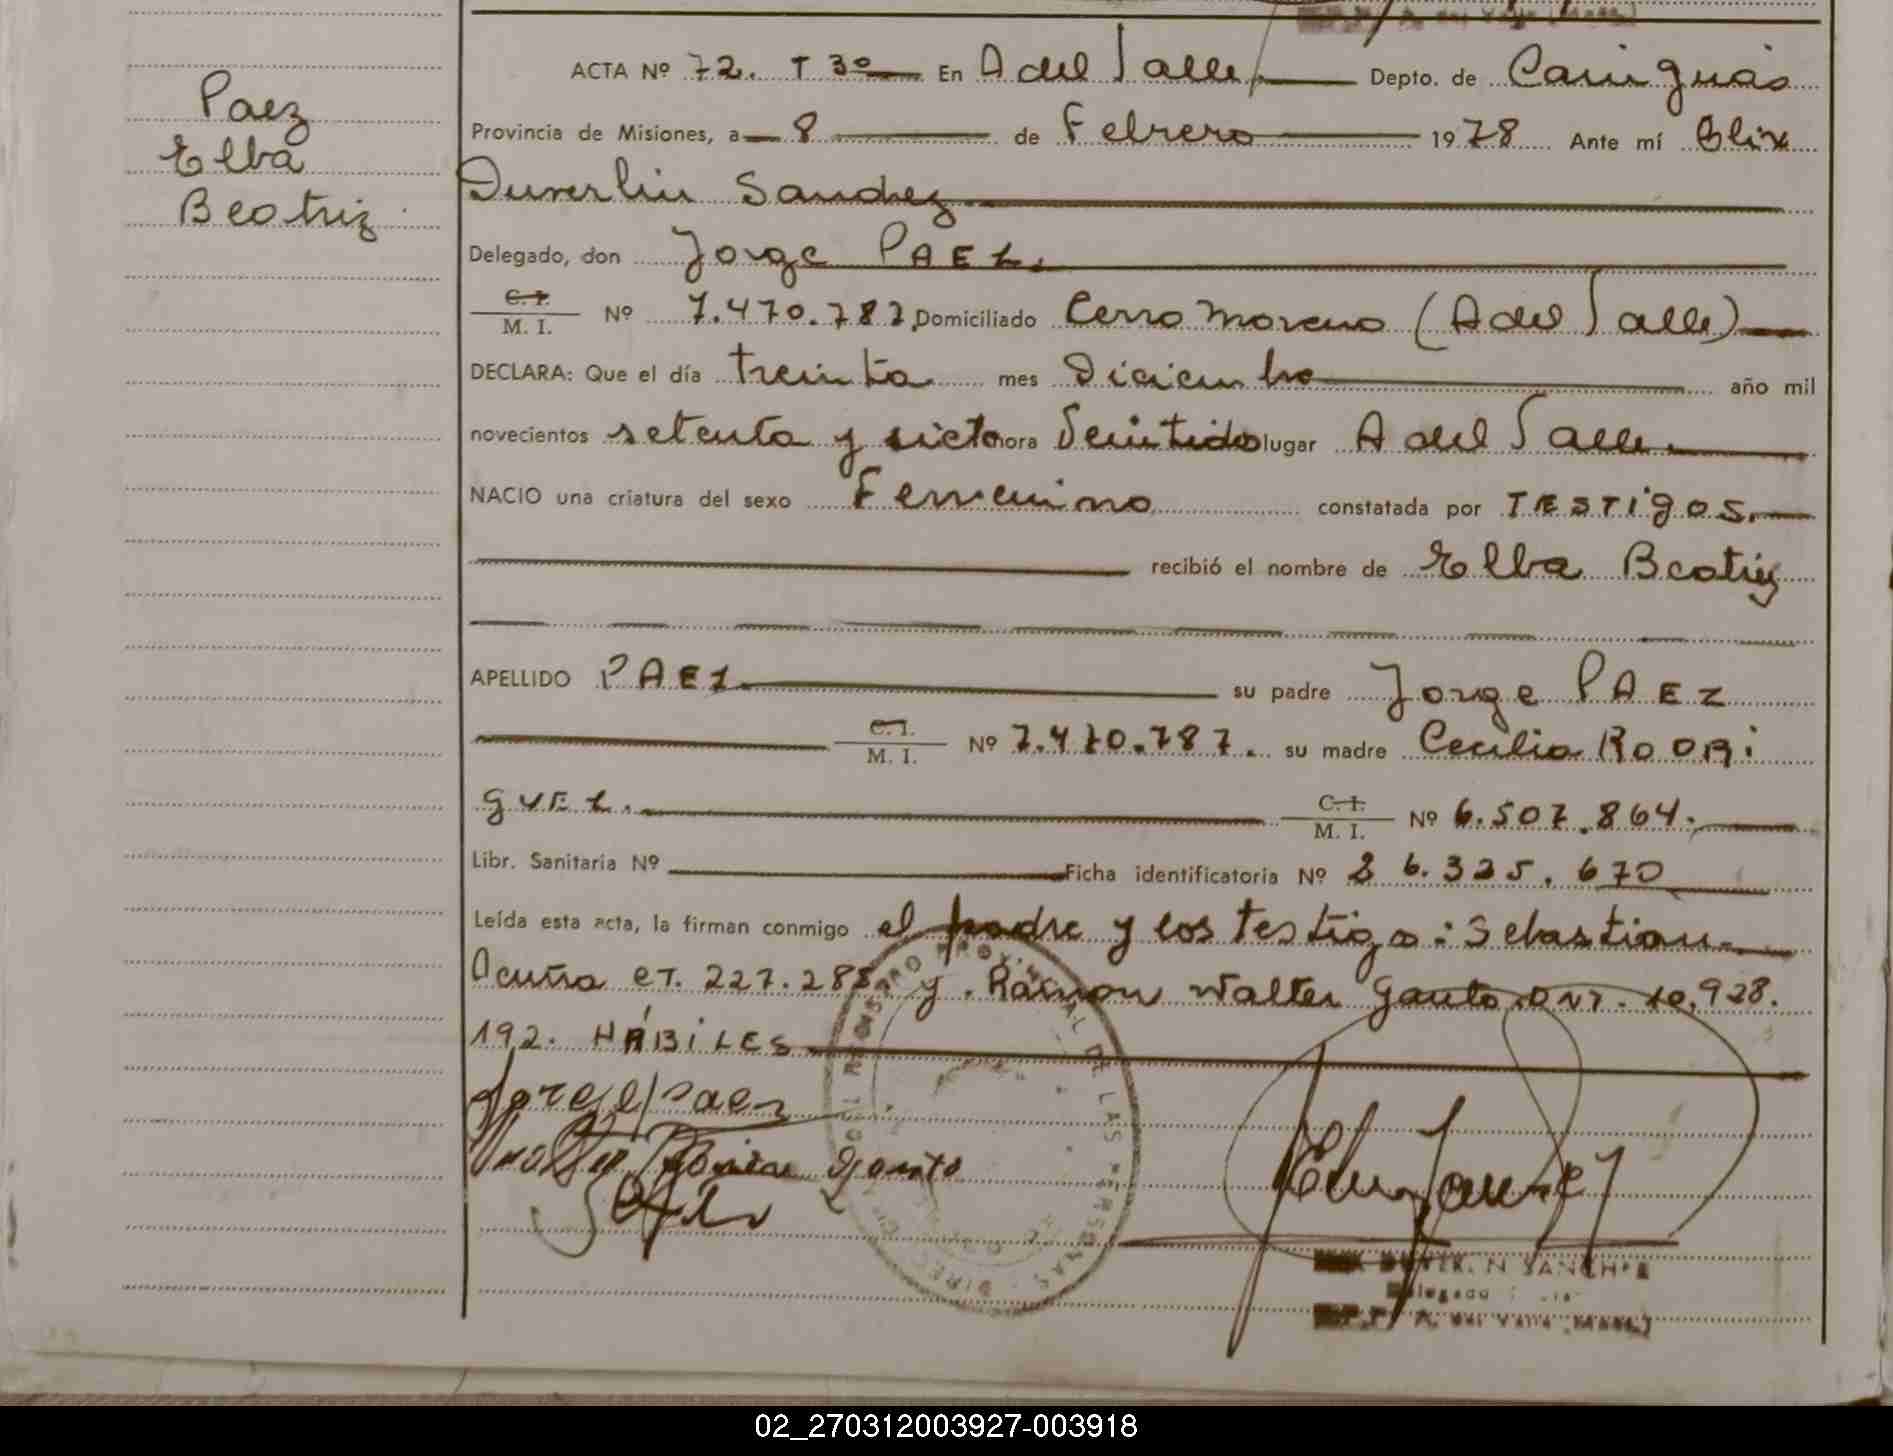 Paez
Elba
Beatriz
ACTA Nº 72. T 3º En A del Valle Depto. de Cainguás
Provincia de Misiones, a 8 de Febrero 1978 Ante mí Elix
Duverlin Sanchez
Delegado, don Jorge PAEZ.
C. I.
M. I. Nº 7.470.787. Domiciliado Cerro Moreno (A del Valle)
DECLARA: Que el día treinta mes Diciembre año mil
novecientos setenta y siete hora Veintidos lugar A del Valle
NACIO una criatura del sexo Femenino constatada por TESTigOS.
recibió el nombre de Elba Beatriz
APELLIDO PAEZ su padre Jorge PAEZ
C. I.
M. I. Nº 7.470.787. su madre Cecilia RODRi
gUEZ.
C. I.
M. I. Nº 6.507.864.
Libr. Sanitaria Nº Ficha identificatoria Nº 26.325.670
Leída esta acta, la firman conmigo el padre y los testigo: Sebastian
Acuña CI. 227.285 y. Ramon Walter Gauto DNI. 10.928.
192. HÁBiLES
Jorge Paez
Gauto
REGISTRO PROVINCIAL DE LAS PERSONAS
SANCHEZ
Delegado
A. del Valle
02_270312003927-003918